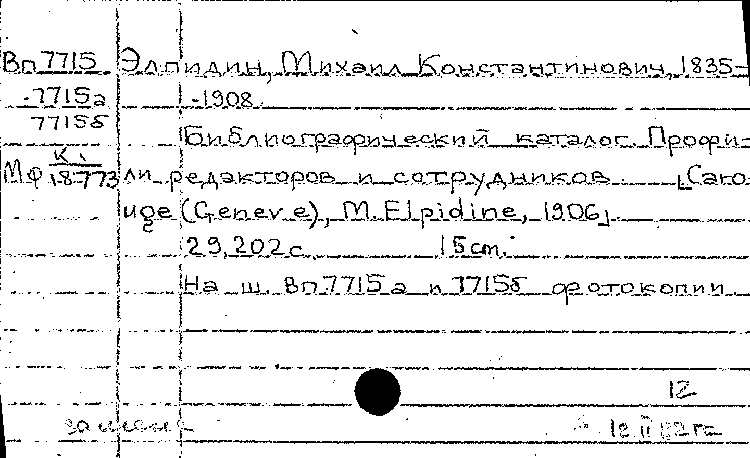 Вп 7715 Элпидин, Михаил Константинович, 1835-
7715а -1908.
7715б Библиографический каталог. Профи-
Мф К. 18-773 ли редакторов и сотрудников. [Caro-
uge (Geneve), M. Elpidine, 1906]
29, 202 с. 15 cm.
На ш. Вп 7715а и 7715б фотокопии
12
замена